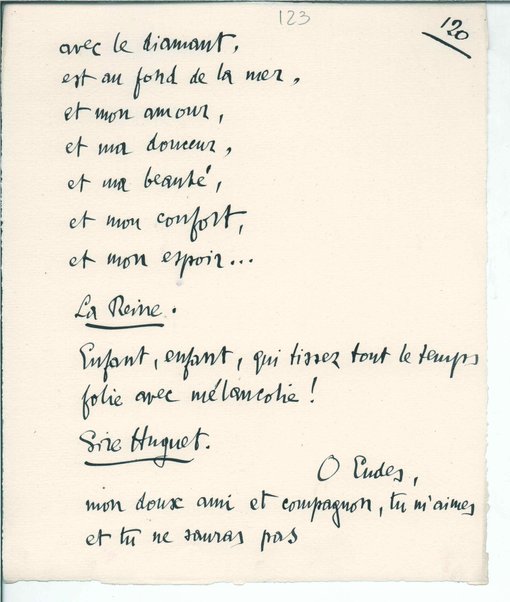 123
120
avec le diamant,
est au fond de la mer,
et mon amour,
et ma douceur,
et ma beauté,
et mon confort,
et mon espoir...
La Reine.
Enfant, enfant, qui tissez tout le temps
folie avec mélancolie !
Sire Huguet.
O Eudes,
mon doux ami et compagnon, tu m'aimes
et tu ne sauras pas